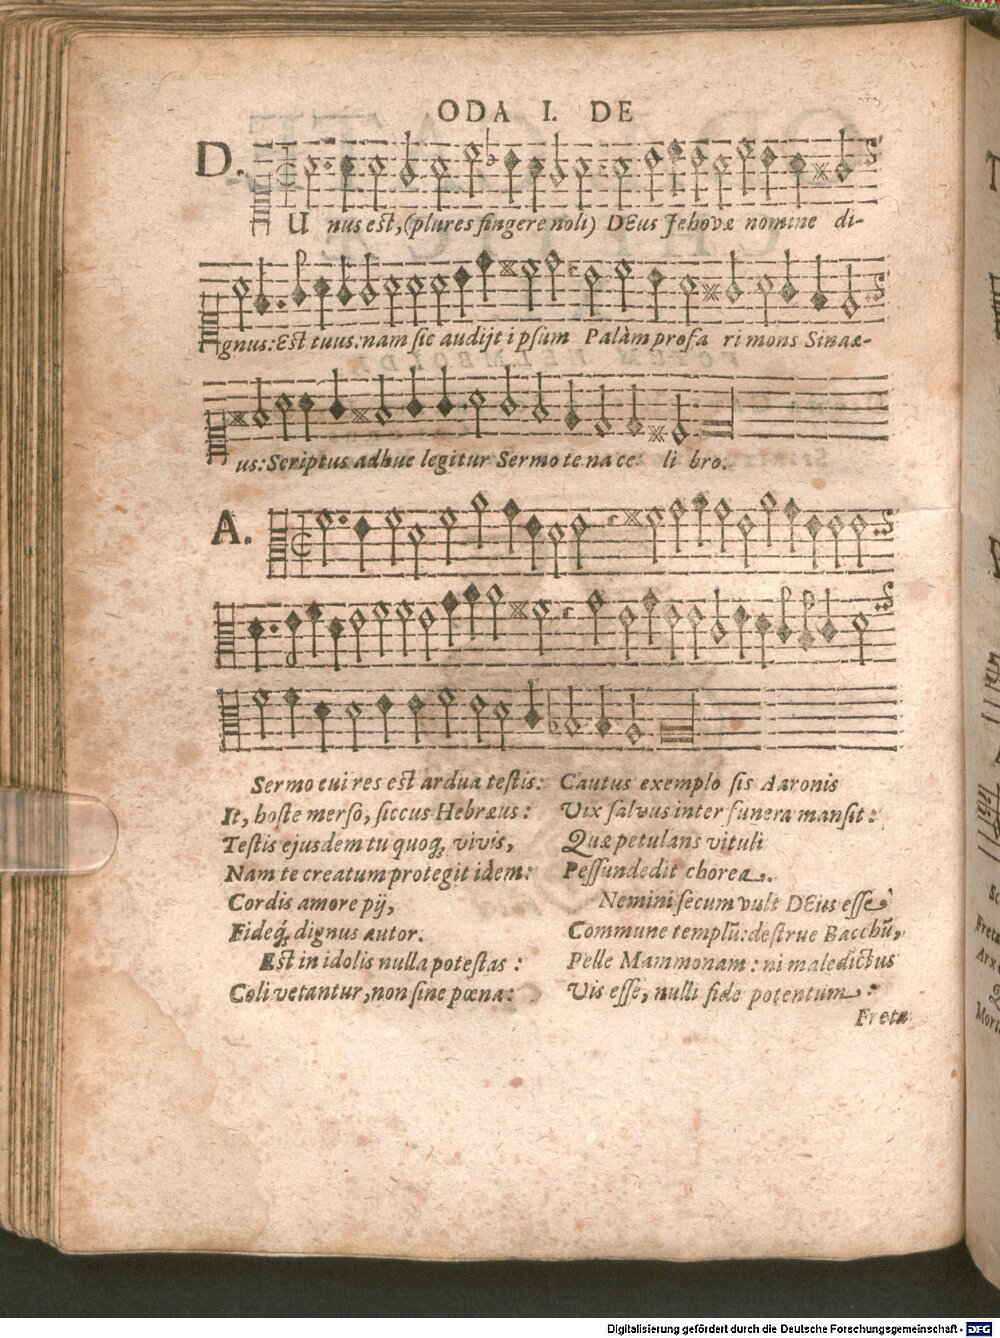 ODA I. DE
D.
Unus est, (plures fingere noli) DEus Jehovæ nomine di-
gnus: Est tuus: nam sic audijt ipsum Palàm profari mons Sinaæ-
us: Scriptus adhuc legitur Sermo tenaceli bro.
A.
Sermo cui res est ardua testis:
It, hoste merso, siccus Hebræus:
Testis ejusdem tu quoq; vivis,
Nam te creatum protegit idem:
Cordis amore pij,
Fideq́; dignus autor.
Est in idolis nulla potestas:
Coli vetantur, non sine pœna:
Cautus exemplo sis Aaronis
Vix salvus inter funera mansit:
Quæ petulans vituli
Pessundedit chorea.
Nemini secum vult DEus esse
Commune templū: destrue Bacchū,
Pelle Mammonam: ni maledictus
Vis esse, nulli fide potentum:
Fretæ
Digitalisierung gefördert durch die Deutsche Forschungsgemeinschaft - DFG